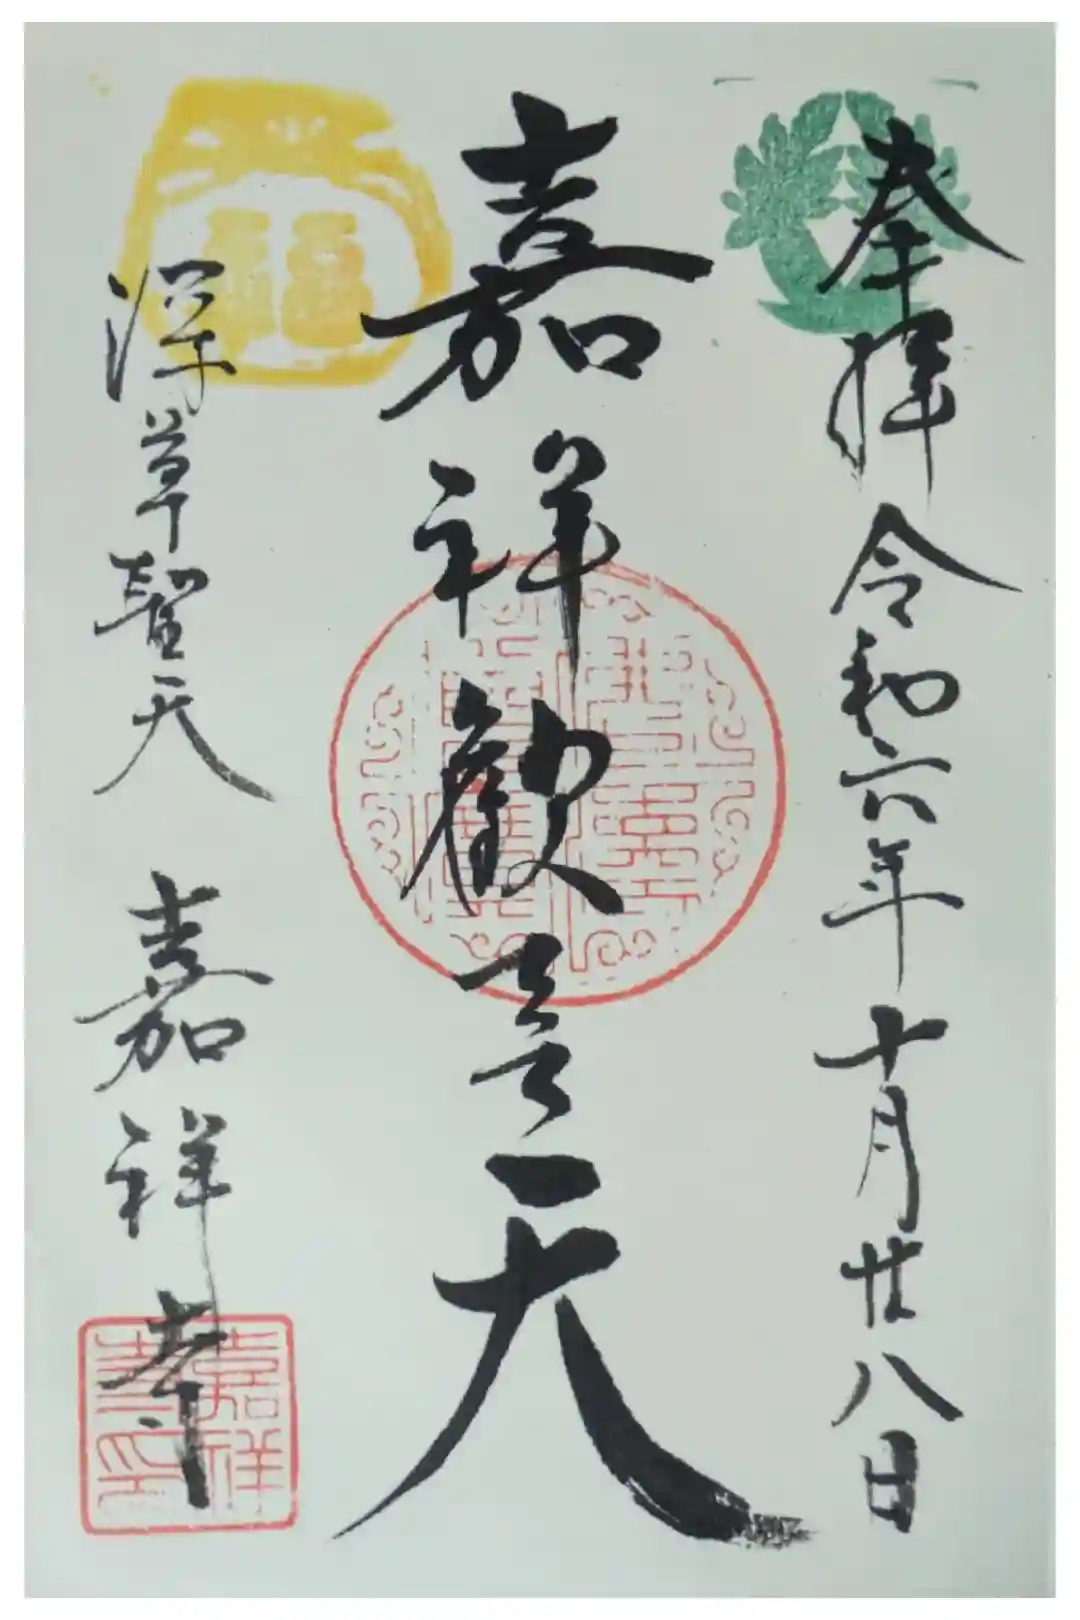 奉拝 令和六年十月廿八日
嘉祥歓喜天
深草聖天 嘉祥寺
嘉祥寺印